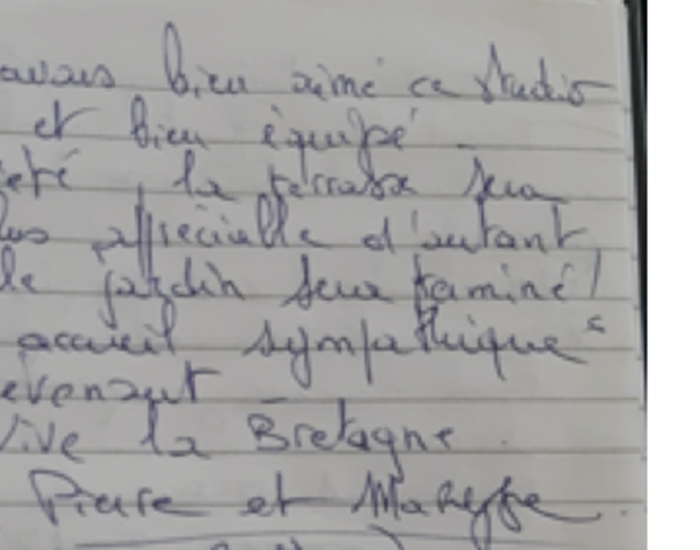 avons bien aimé ce studio
et bien équipé.
été, la terrasse sera
lus appréciable d'autant
le jardin sera terminé!
accueil sympathique
evenant
Vive la Bretagne.
Pierre et